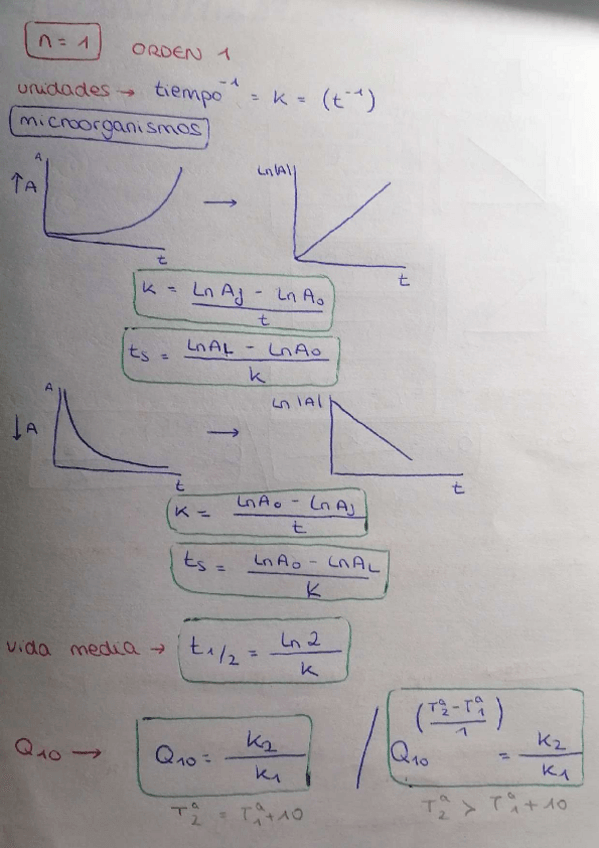 n = 1 ORDEN 1
unidades → tiempo⁻¹ = K = (t⁻¹)
microorganismos
A
↑A
t
→
Ln|A|
t
K = (Ln Aj - Ln A₀) / t
ts = (Ln AL - Ln A₀) / K
A
↓A
t
→
Ln |A|
t
K = (Ln A₀ - Ln Aj) / t
ts = (Ln A₀ - Ln AL) / K
vida media → t1/2 = Ln 2 / K
Q10 → Q10 = K2 / K1 / Q10^((T2ª - T1ª) / 1) = K2 / K1
T2ª = T1ª + 10 T2ª > T1ª + 10